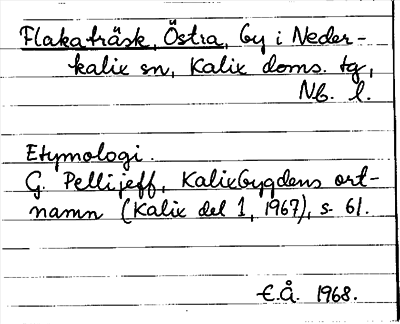 Flakaträsk, Östra, by i Neder-
kalix sn, Kalix doms. tg,
Nb. l.
Etymologi.
G. Pellijeff, Kalixbygdens ort-
namn (Kalix del 1, 1967), s. 61.
E.Å. 1968.